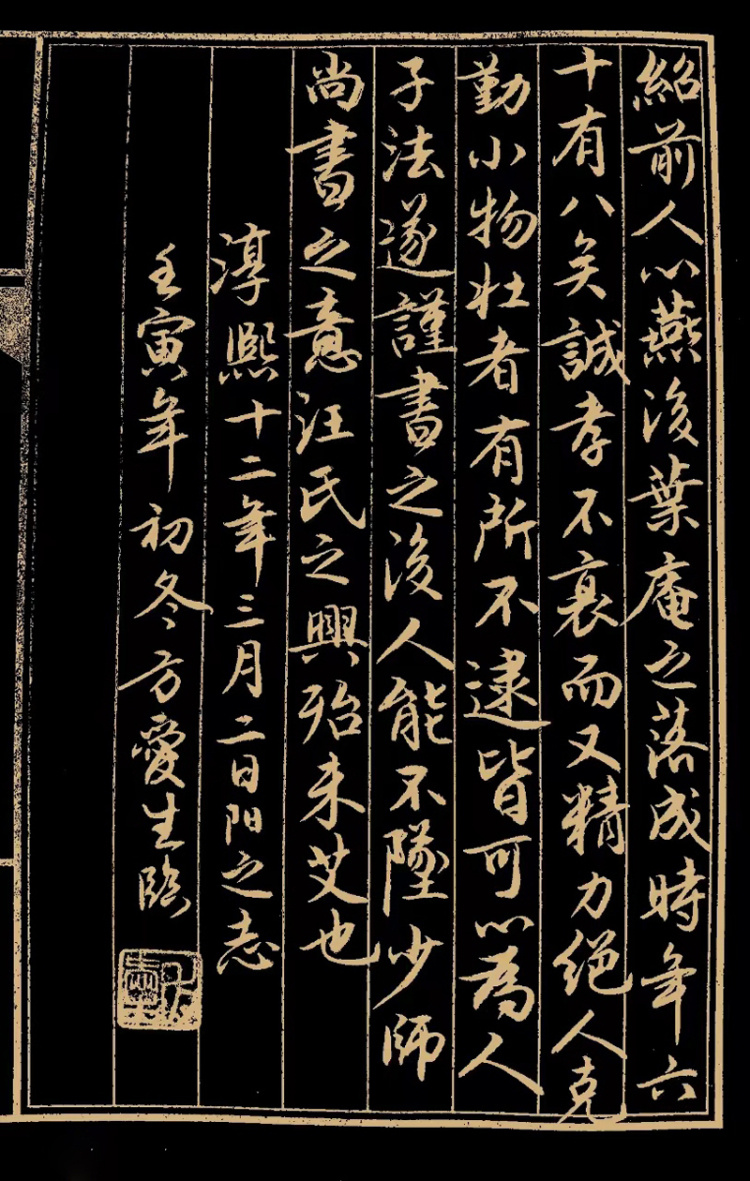 紹前人以燕後葉庵之落成時年六
十有八矣誠孝不衰而又精力絕人克
勤小物壯者有所不逮皆可以為人
子法遂謹書之後人能不墜少師
尚書之意汪氏之興殆未艾也
淳熙十二年三月二日陽之志
壬寅年初冬方愛生臨